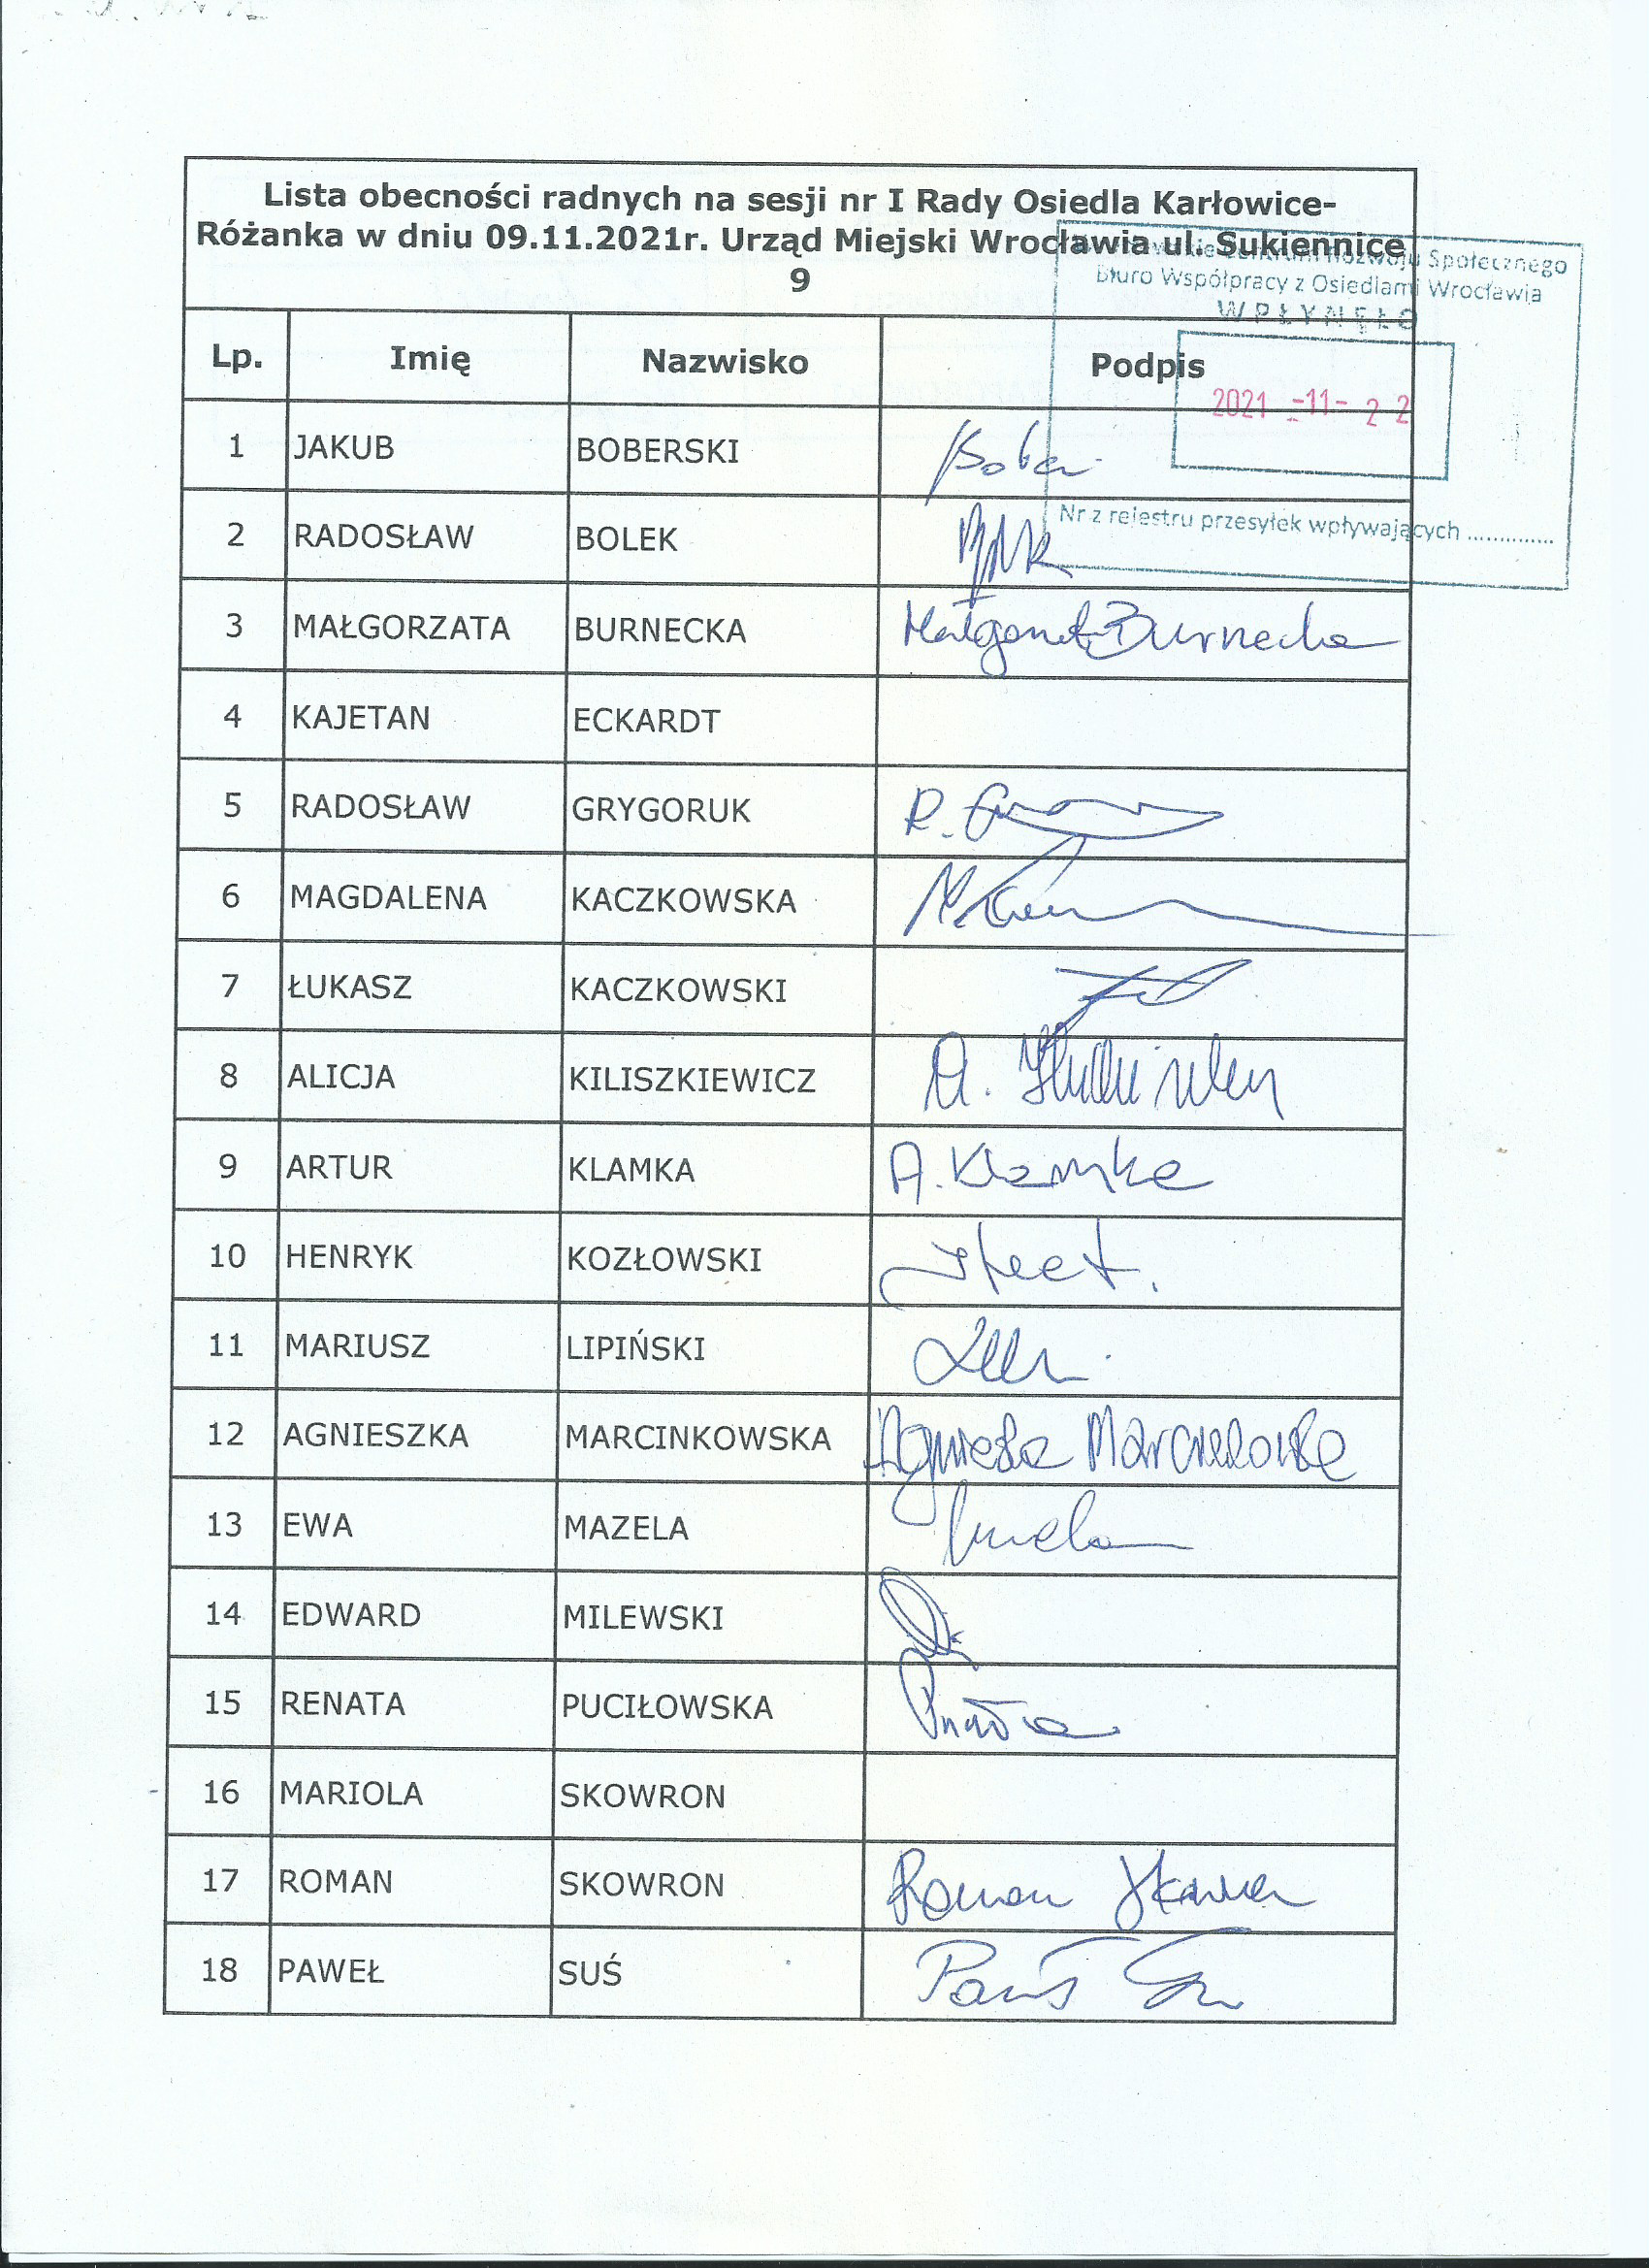 Lista obecności radnych na sesji nr I Rady Osiedla Karłowice-
Różanka w dniu 09.11.2021r. Urząd Miejski Wrocławia ul. Sukiennice
9
Centrum Rozwoju Społecznego
Biuro Współpracy z Osiedlami Wrocławia
WPŁYNĘŁO
2021 -11- 22
Nr z rejestru przesyłek wpływających ..............
Lp. Imię Nazwisko Podpis
1 JAKUB BOBERSKI
2 RADOSŁAW BOLEK
3 MAŁGORZATA BURNECKA Małgorzata Burnecka
4 KAJETAN ECKARDT
5 RADOSŁAW GRYGORUK R.
6 MAGDALENA KACZKOWSKA
7 ŁUKASZ KACZKOWSKI
8 ALICJA KILISZKIEWICZ A.
9 ARTUR KLAMKA A. Klamka
10 HENRYK KOZŁOWSKI
11 MARIUSZ LIPIŃSKI
12 AGNIESZKA MARCINKOWSKA Agnieszka Marcinkowska
13 EWA MAZELA
14 EDWARD MILEWSKI
15 RENATA PUCIŁOWSKA
16 MARIOLA SKOWRON
17 ROMAN SKOWRON Roman Skowron
18 PAWEŁ SUŚ Paweł Suś